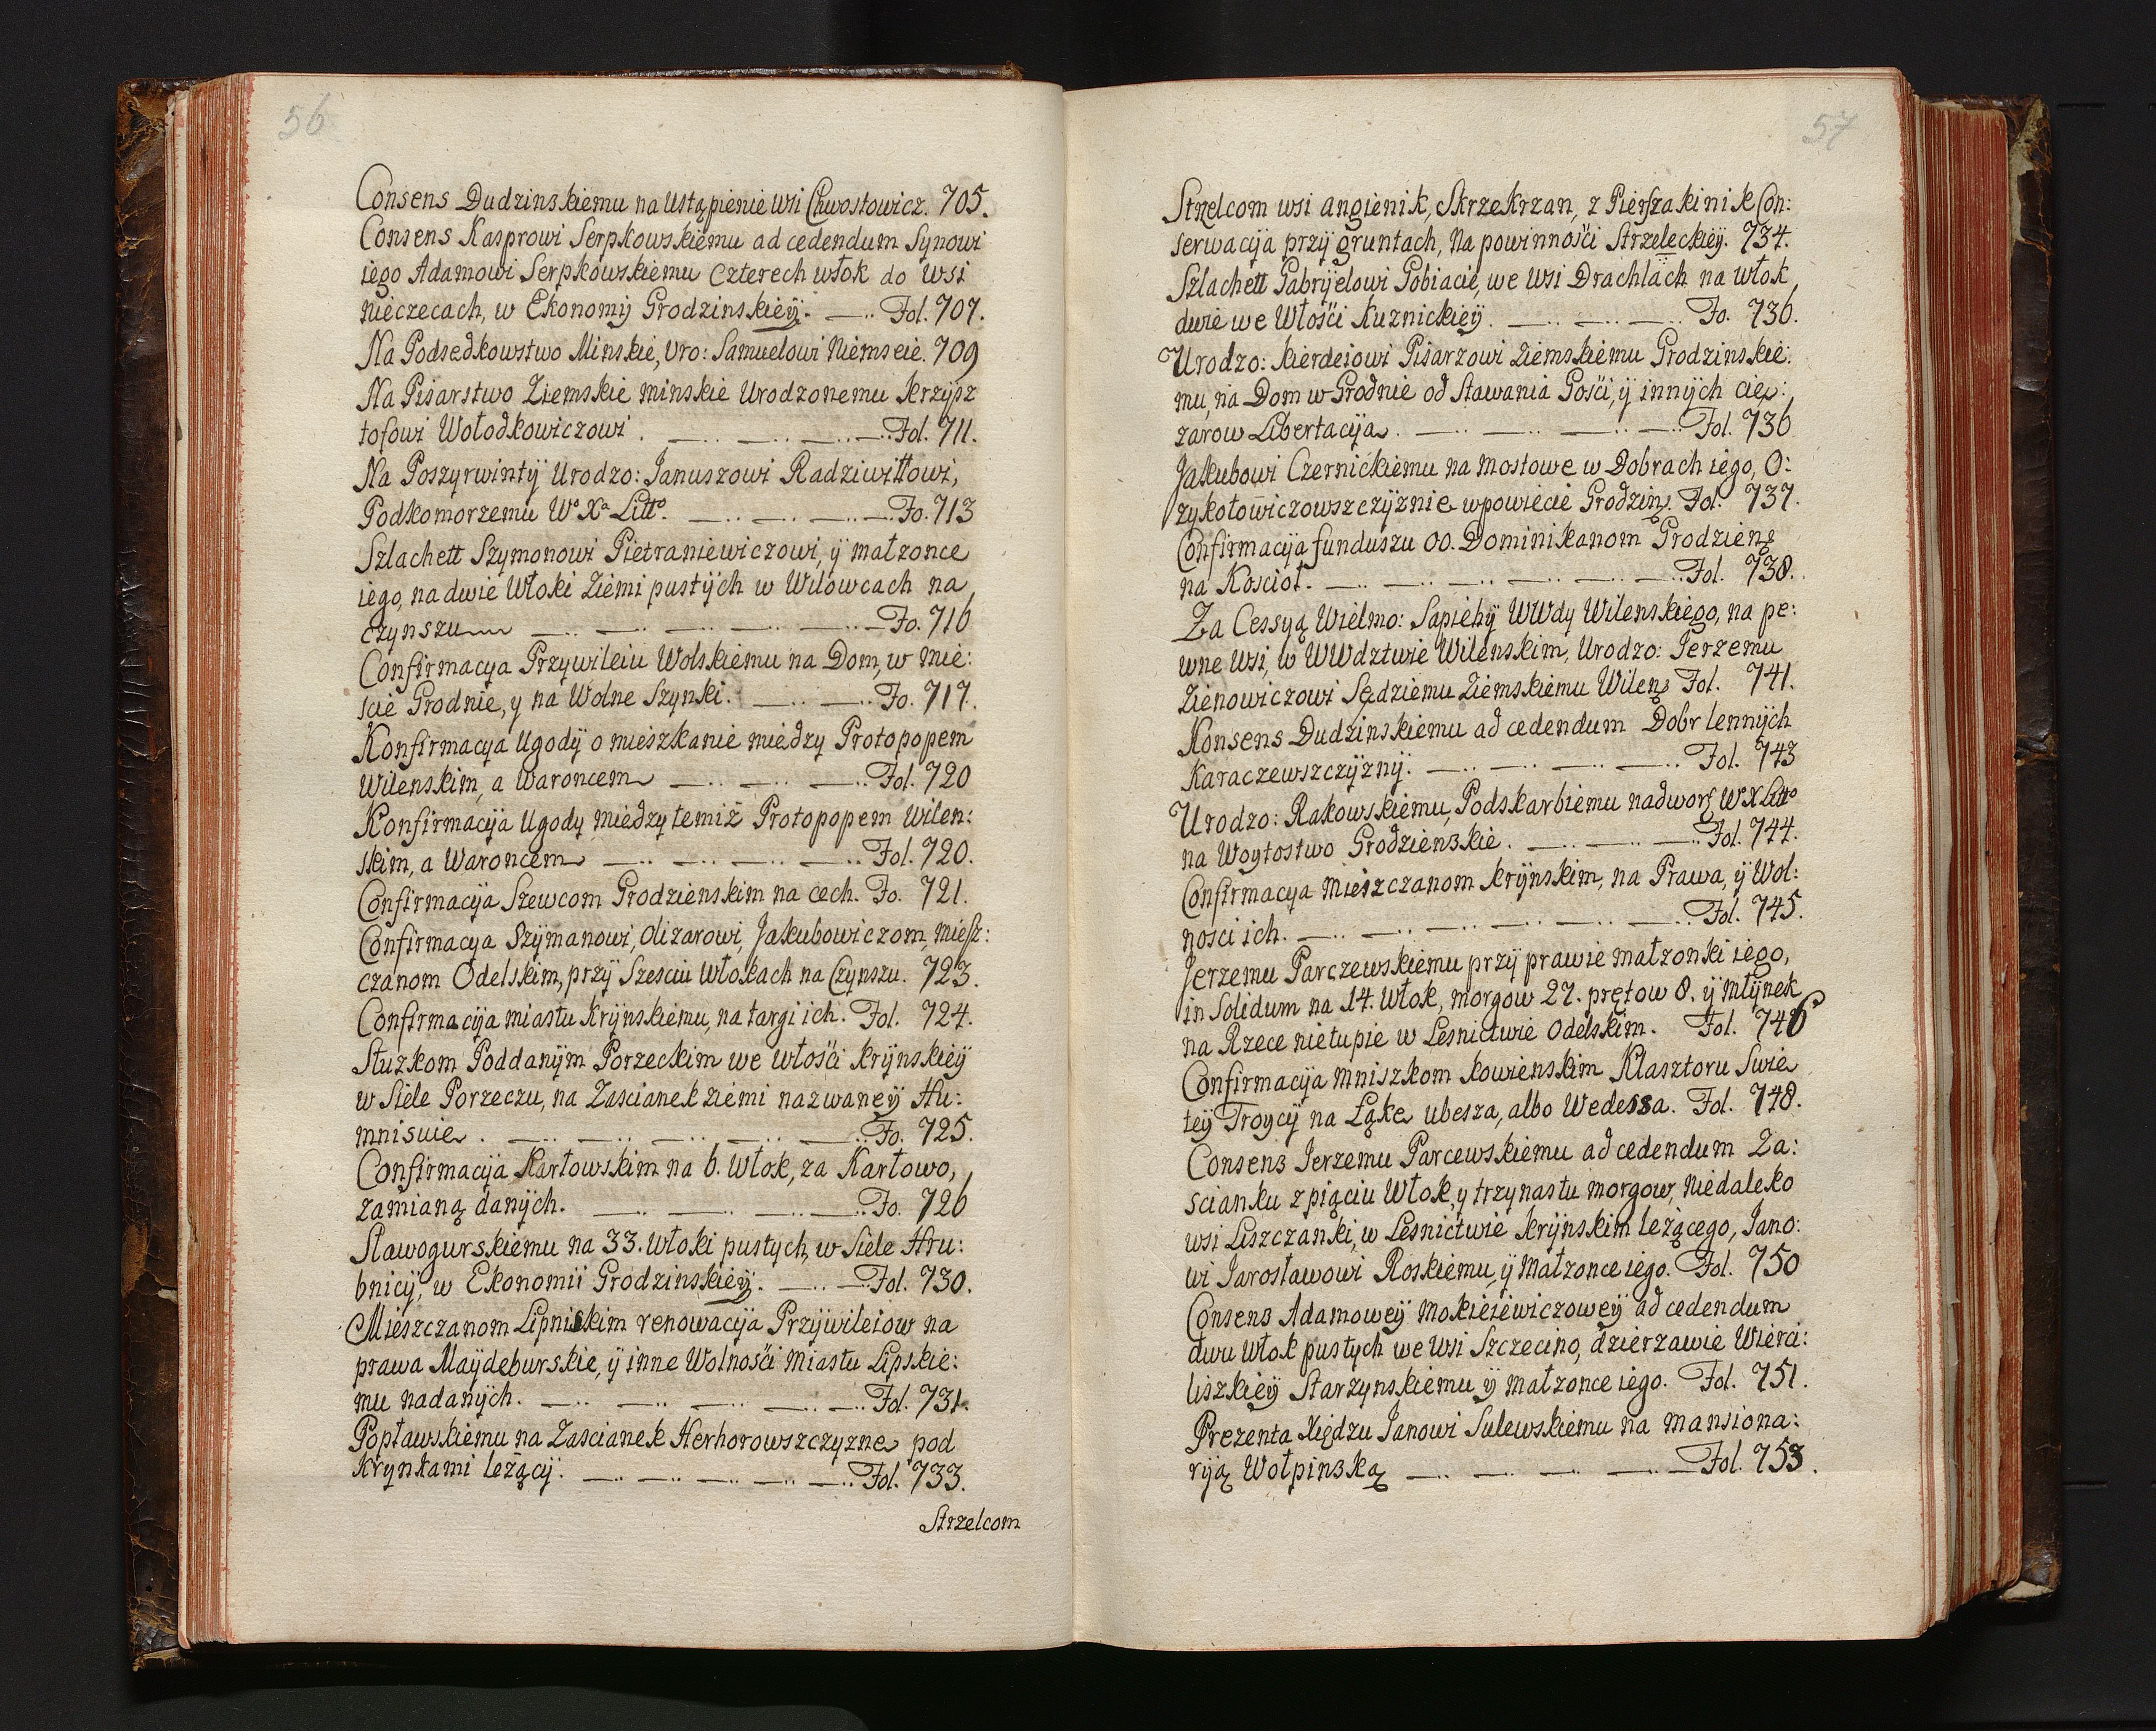 56
Consens Dudzinskiemu na Ustąpienie wsi Chwostowicz. 705.
Consens Kasprowi Serpkowskiemu ad cedendum Synowi
iego Adamowi Serpkowskiemu Czterech włok do wsi
Nieczecach, w Ekonomij Grodzinskieÿ. Fol. 707.
Na Podsedkowstwo Minskie, Uro: Samuelowi Niemseie. 709
Na Pisarstwo Ziemskie Minskie Urodzonemu Krzÿsz
tofowi Wołodkowiczowi. Fol. 711.
Na Poszyrwintÿ Urodzo: Januszowi Radziwiłłowi,
Podkomorzemu Wº Xª Littº. Fo. 713
Szlachett Szymonowi Pietraniewiczowi, ÿ małzonce
iego, na dwie Włoki Ziemi pustÿch w Wilowcach na
czynszu Fo. 716
Confirmacya Przywileiu Wolskiemu na Dom, w mie:
scie Grodnie, y na Wolne Szynki. Fo. 717.
Konfirmacya Ugodÿ o mieszkanie miedzy Protopopem
Wilenskim, a Waroncem Fol. 720
Konfirmacÿa Ugody miedzy temiz Protopopem Wilen:
skim, a Waroncem Fol. 720.
Confirmacÿa Szewcom Grodzienskim na cech. Fo. 721.
Confirmacya Szÿmanowi, Olizarowi, Jakubowiczom, miesz:
czanom Odelskim, przÿ Szesciu Włokach na Czynszu. 723.
Confirmacÿa miastu Krÿnskiemu, na targi ich. Fol. 724.
Stuzkom Poddanÿm Porzeckim we włosci Krÿnskieÿ
w Siele Porzeczu, na Zascianek ziemi nazwaneÿ Hu:
mnisuie. Fo. 725.
Confirmacÿa Karłowskim na 6. Włok, za Karłowo,
zamianą danÿch. Fo. 726
Sławogurskiemu na 33. Włoki pustych, w Siele Hru:
bnicÿ, w Ekonomii Grodzinskieÿ. Fol. 730.
Mieszczanom Lipniskim renowacÿa Przÿwileiow na
prawa Maÿdeburskie, ÿ inne Wolnosci Miastu Lipskie:
mu nadanÿch. Fol. 731.
Popławskiemu na Zascianek Herhorowszczyzne pod
Krynkami lezącÿ. Fol. 733.
Strzelcom
57
Strzelcom wsi angienik, Skrzekrzan, z Pierszakinik Con:
serwacÿa przÿ gruntach, Na powinnosci Strzeleckieÿ. 734.
Szlachett Gabrÿelowi Gobiacie, we wsi Drachlach na włok
dwie we Włosci Kuznickieÿ. Fo. 736.
Urodzo: Kierdeiowi Pisarzowi Ziemskiemu Grodzinskie:
mu, na Dom w Grodnie od Stawania Gosci, ÿ innÿch cięz:
zarow Libertacÿa. Fol. 736
Jakubowi Czernickiemu na mostowe w Dobrach iego, O:
zykołowiczowszczÿznie w powiecie Grodzins. Fol. 737.
Confirmacÿa funduszu OO. Dominikanom Grodziens
na Koscioł. Fol. 738.
Za Cessyą Wielmo: Sapiehÿ WWdy Wilenskiego, na pe:
wne Wsi, w WWdztwie Wilenskim, Urodzo: Jerzemu
Zienowiczowi Sędziemu Ziemskiemu Wilens Fol. 741.
Konsens Dudzinskiemu ad cedendum Dobr lennÿch
Karaczewszczÿznÿ. Fol. 743
Urodzo: Rakowskiemu, Podskarbiemu nadwors Wº X Littº
na Woytostwo Grodzienskie. Fol. 744.
Confirmacya mieszczanom Krÿnskim, na Prawa, ÿ Wol:
nosci ich. Fol. 745.
Jerzemu Parczewskiemu przÿ prawie małzonki iego,
in Solidum na 14. Włok, morgow 27. prętow 8. ÿ Młÿnek
na Rzece nietupie w Lesnictwie Odelskim. Fol. 746
Confirmacÿa Mniszkom Kowienskim Klasztoru Swie
teÿ Troycÿ na Łąke ubesza, albo Wedessa. Fol. 748.
Consens Jerzemu Parcewskiemu ad cedendum Za:
scianku z piąciu Włok, y trzynastu morgow, niedaleko
wsi Liszczanki, w Lesnictwie Krÿnskim lezącego, Jano:
wi Jarosławowi Roskiemu, ÿ Małzonce iego. Fol. 750
Consens Adamoweÿ Mokieiewiczoweÿ ad cedendum
dwu Włok pustych we Wsi Szczecino, dzierzawie Wierci:
liszkieÿ Starzynskiemu ÿ małzonce iego. Fol. 751.
Prezenta Xiędzu Janowi Sulewskiemu na mansiona:
rÿą Wołpinską Fol. 753.